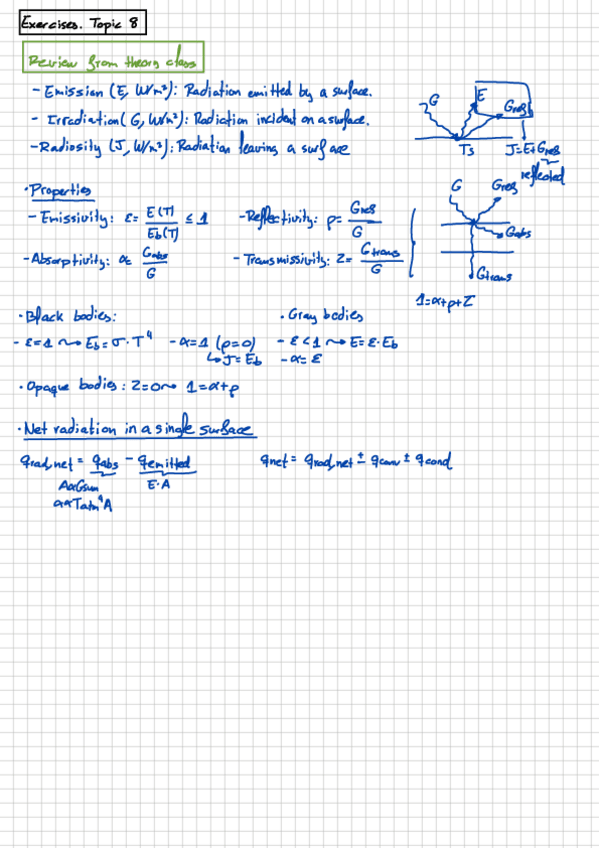 Exercises. Topic 8
Review from theory class
- Emission (E, W/m²): Radiation emitted by a surface.
- Irradiation (G, W/m²): Radiation incident on a surface.
- Radiosity (J, W/m²): Radiation leaving a surface
G E Gref
Ts J=E+Gref
reflected
· Properties
- Emissivity: ε = E(T)/Eb(T) ≤ 1 - Reflectivity: ρ = Gref/G
- Absorptivity: α = Gabs/G - Transmissivity: Z = Gtrans/G
G Gref
Gabs
Gtrans
1=α+ρ+Z
· Black bodies: · Gray bodies
- ε=1 ⟿ Eb=σ·T⁴ - α=1 (ρ=0) - ε<1 ⟿ E=ε·Eb
↳ J=Eb - α=ε
· Opaque bodies: Z=0 ⟿ 1=α+ρ
· Net radiation in a single surface
qrad,net = qabs - qemitted qnet = qrad,net ± qconv ± qcond
AαGsun E·A
ασTatm⁴A